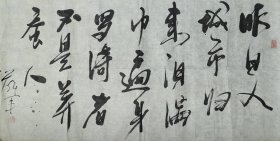 昨日入
城市归
来泪满
巾遍身
罗绮者
不是养
蚕人